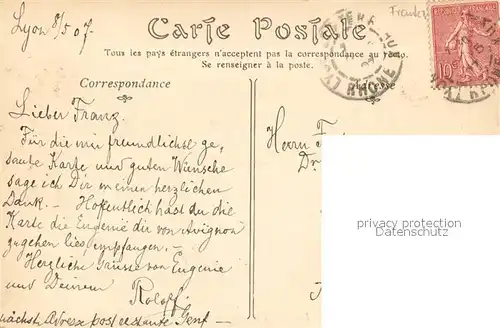 Lyon 8/5 07.
Carte Postale
Tous les pays étrangers n'acceptent pas la correspondance au recto.
Se renseigner à la poste.
Correspondance
Adresse
10
RHONE
Lieber Franz.
Für die mir freundlichst ge-
sandte Karte und guten Wünsche
sage ich Dir meinen herzlichen
Dank. – Hoffentlich hast du die
Karte die Eugenie dir von Avignon
zugehen lies, empfangen. –
Herzliche Grüsse von Eugenie
und Deinem
Roloff.
nächste Adresse post restante Genf –
Herrn
Dr
privacy protection
Datenschutz